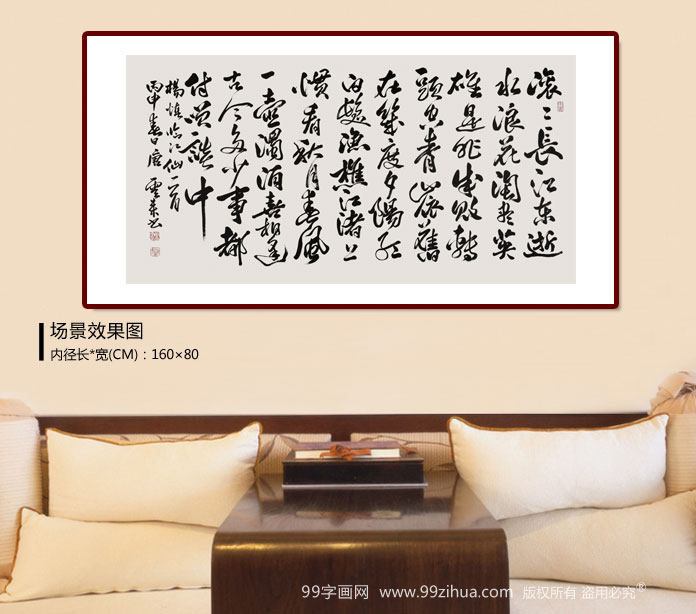 滚〻長江东逝
水浪花淘尽英
雄是非成敗轉
頭空青山依舊
在幾度夕陽红
白髮漁樵江渚上
慣看秋月春風
一壶濁酒喜相逢
古今多少事都
付笑談中
楊慎临江仙一首
丙申春日唐雲书
场景效果图
内径长*宽(CM)：160×80
99字画网 www.99zihua.com 版权所有 盗用必究®